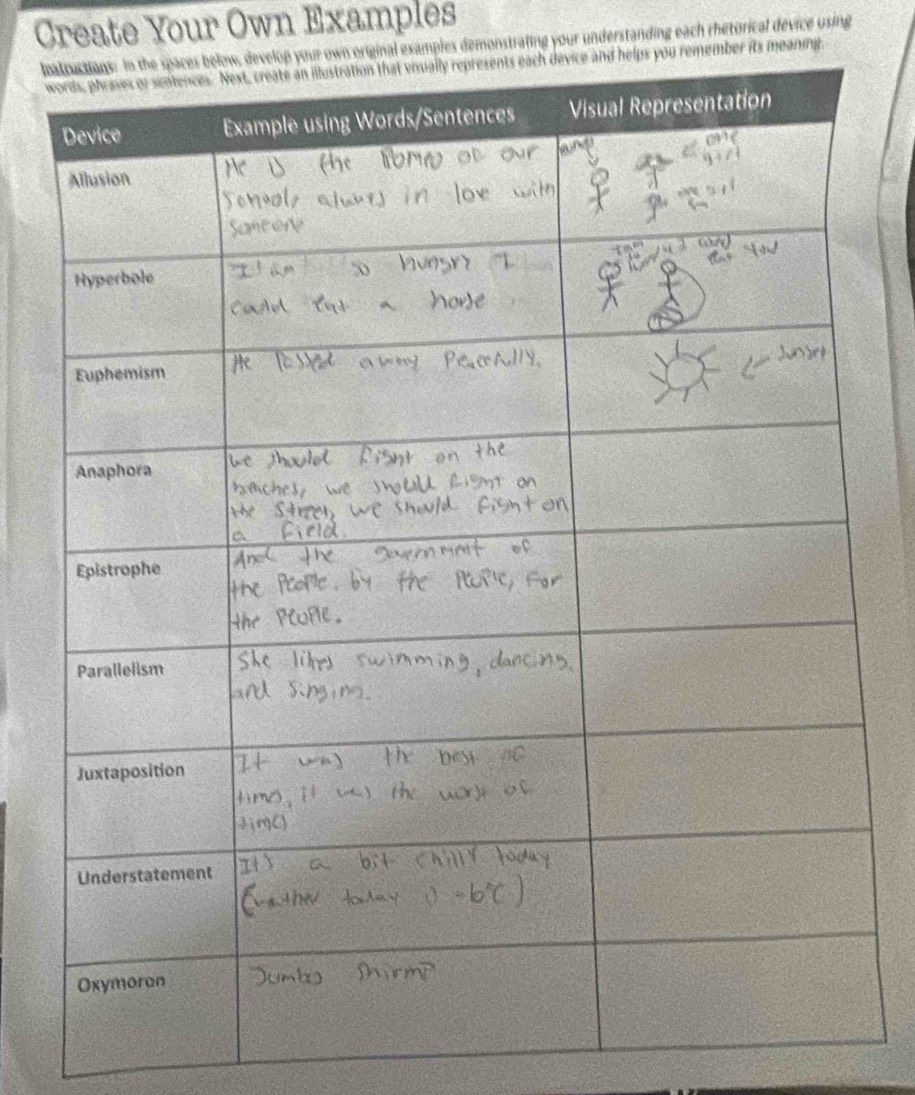 Create Your Own Examples
Instructions: In the spaces below, develop your own original examples demonstrating your understanding each rhetorical device using
words, phrases or sentences. Next, create an illustration that visually represents each device and helps you remember its meaning.
Device Example using Words/Sentences Visual Representation
Allusion
He is the of our
school, always in love with
someone
one
girl
Hyperbole
I am so hungry I
could eat a horse
I could
eat you
Euphemism
He Passed away Peacefully.
sunset
Anaphora
We should fight on the
beaches, we should fight on
the street, we should fight on
a field.
Epistrophe
And the government of
the People, by the People, For
the People.
Parallelism
She likes swimming, dancing,
and singing.
Juxtaposition
It was the best of
times, it was the worst of
times
Understatement
It's a bit chilly today
(wather today is -6°C)
Oxymoron
Jumbo Shirmp